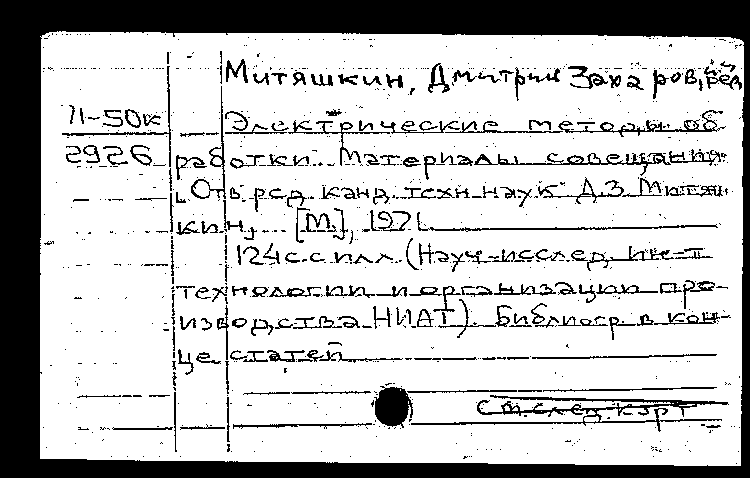 Митяшкин, Дмитрий Захаров, ред
71-50к Электрические методы об-
2926 работки. Материалы совещания.
Отв. ред. канд. техн. наук Д.З. Митяш-
кин, [М.], 1971.
124 с. с илл. (Науч.-исслед. ин-т
технологии и организации про-
изводства НИАТ). Библиогр. в кон-
це статей
См. след. карт